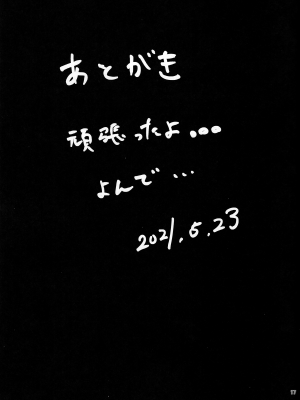 あとがき
頑張ったよ...
よんで...
2021.5.23